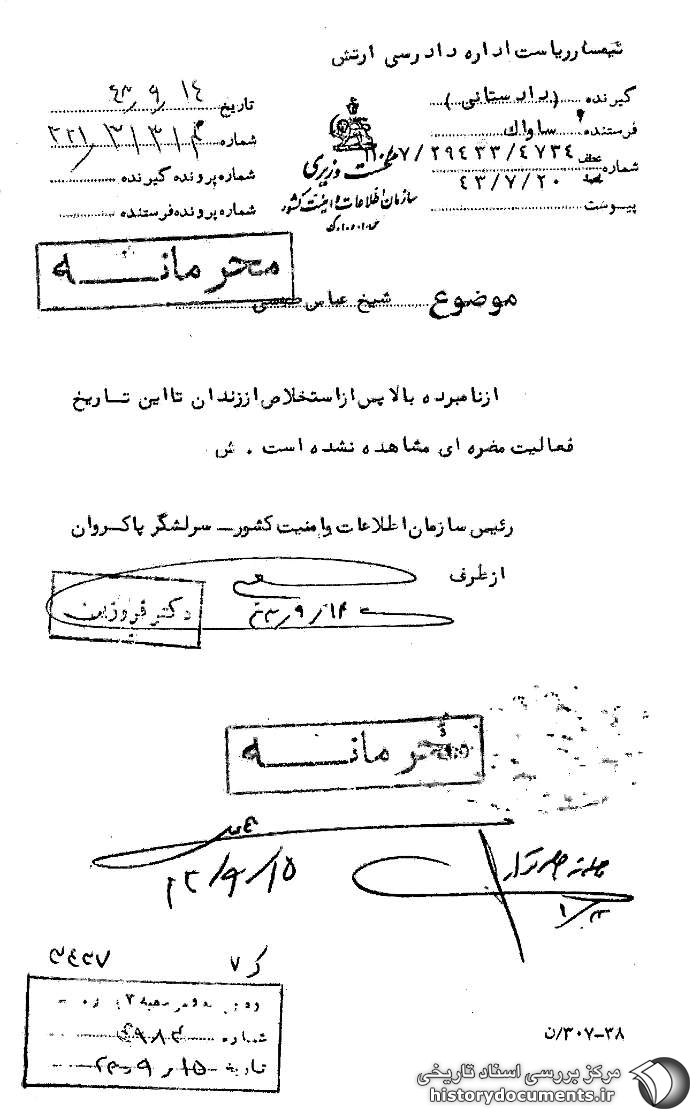 تیمسار ریاست اداره دادرسی ارتش
گیرنده (دادستانی)
فرستنده ساواک
شماره عطف ۱۱۰۰۷/۲۹۴۳۳/۴۷۳۴
۴۳/۷/۲۰
پیوست
نخست وزیری
سازمان اطلاعات و امنیت کشور
س.ا.و.ا.ک
تاریخ ۴۳/۹/۱۴
شماره
شماره پرونده گیرنده
شماره پرونده فرستنده
محرمانه
موضوع شیخ عباس طبسی
از نامبرده بالا پس از استخلاص از زندان تا این تاریخ
فعالیت مضره ای مشاهده نشده است . ش
رئیس سازمان اطلاعات و امنیت کشور ـ سرلشگر پاکروان
از طرف
دکتر فروزین
۴۳/۹/۱۴
محرمانه
۴۳/۹/۱۵
۳۴۳۷
ک ۷
شماره ۴۹۸۳
تاریخ ۴۳/۹/۱۵
۳۰۷-۳۸/ن
مرکز بررسی اسناد تاریخی
historydocuments.ir